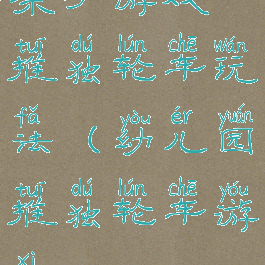 游戏
tuī dú lún chē wán
推独轮车玩
fǎ yòu ér yuán
法（幼儿园
tuī dú lún chē yóu
推独轮车游
xì